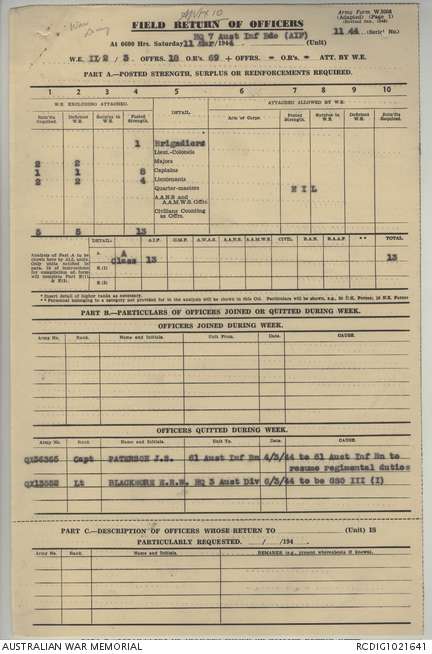 War
Diary
FIELD RETURN OF OFFICERS
Army Form W.3008
(Adapted) (Page 1)
HQ 7 Aust Inf Bde (AIF)
At 0600 Hrs. Saturday 11 Mar/1944 (Unit)
11 44 (Serial No.)
W.E. II/2 / 3 OFFRS. 18 O.R's. 69 + OFFRS. - O.R's. - ATT. BY W.E.
PART A.—POSTED STRENGTH, SURPLUS OR REINFORCEMENTS REQUIRED.
1 2 3 4 5 6 7 8 9 10
W.E. EXCLUDING ATTACHED. ATTACHED ALLOWED BY W.E.
Rein'fts Required. Deficient W.E. Surplus to W.E. Posted Strength. DETAIL. Arm or Corps. Posted Strength. Surplus to W.E. Deficient W.E. Rein'fts Required.
1 Brigadiers
Lieut.-Colonels
2 2 Majors
1 1 8 Captains
2 2 4 Lieutenants
Quarter-masters N I L
A.A.N.S. and A.A.M.W.S. Offrs.
Civilians Counting as Offrs.
5 5 13
DETAIL: A.I.F. C.M.F. A.W.A.S. A.A.N.S. A.A.M.W.S. CIVIL. R.A.N. R.A.A.F. ** TOTAL.
Analysis of Part A to be shown here by ALL units. Only units notified in para. 16 of instructions for compilation of form will complete Part E(1) & E(2).
A. A Class 13 13
E.(1)
E.(2)
* Insert detail of higher ranks as necessary.
** Personnel belonging to a category not provided for in the analysis will be shown in this Col. Particulars will be shown, e.g., 20 U.K. Forces; 10 N.Z. Forces
PART B.—PARTICULARS OF OFFICERS JOINED OR QUITTED DURING WEEK.
OFFICERS JOINED DURING WEEK.
Army No. Rank. Name and Initials. Unit From. Date. CAUSE.
OFFICERS QUITTED DURING WEEK.
Army No. Rank. Name and Initials. Unit To. Date. CAUSE.
QX36365 Capt PATERSON J.S. 61 Aust Inf Bn 4/3/44 to 61 Aust Inf Bn to
resume regimental duties
QX13552 Lt BLACKMORE E.R.W. HQ 3 Aust Div 6/3/44 to be GSO III (I)
PART C.—DESCRIPTION OF OFFICERS WHOSE RETURN TO (Unit) IS
PARTICULARLY REQUESTED. / /194 .
Army No. Rank. Name and Initials. REMARKS (e.g., present whereabouts if known).
AUSTRALIAN WAR MEMORIAL
RCDIG1021641